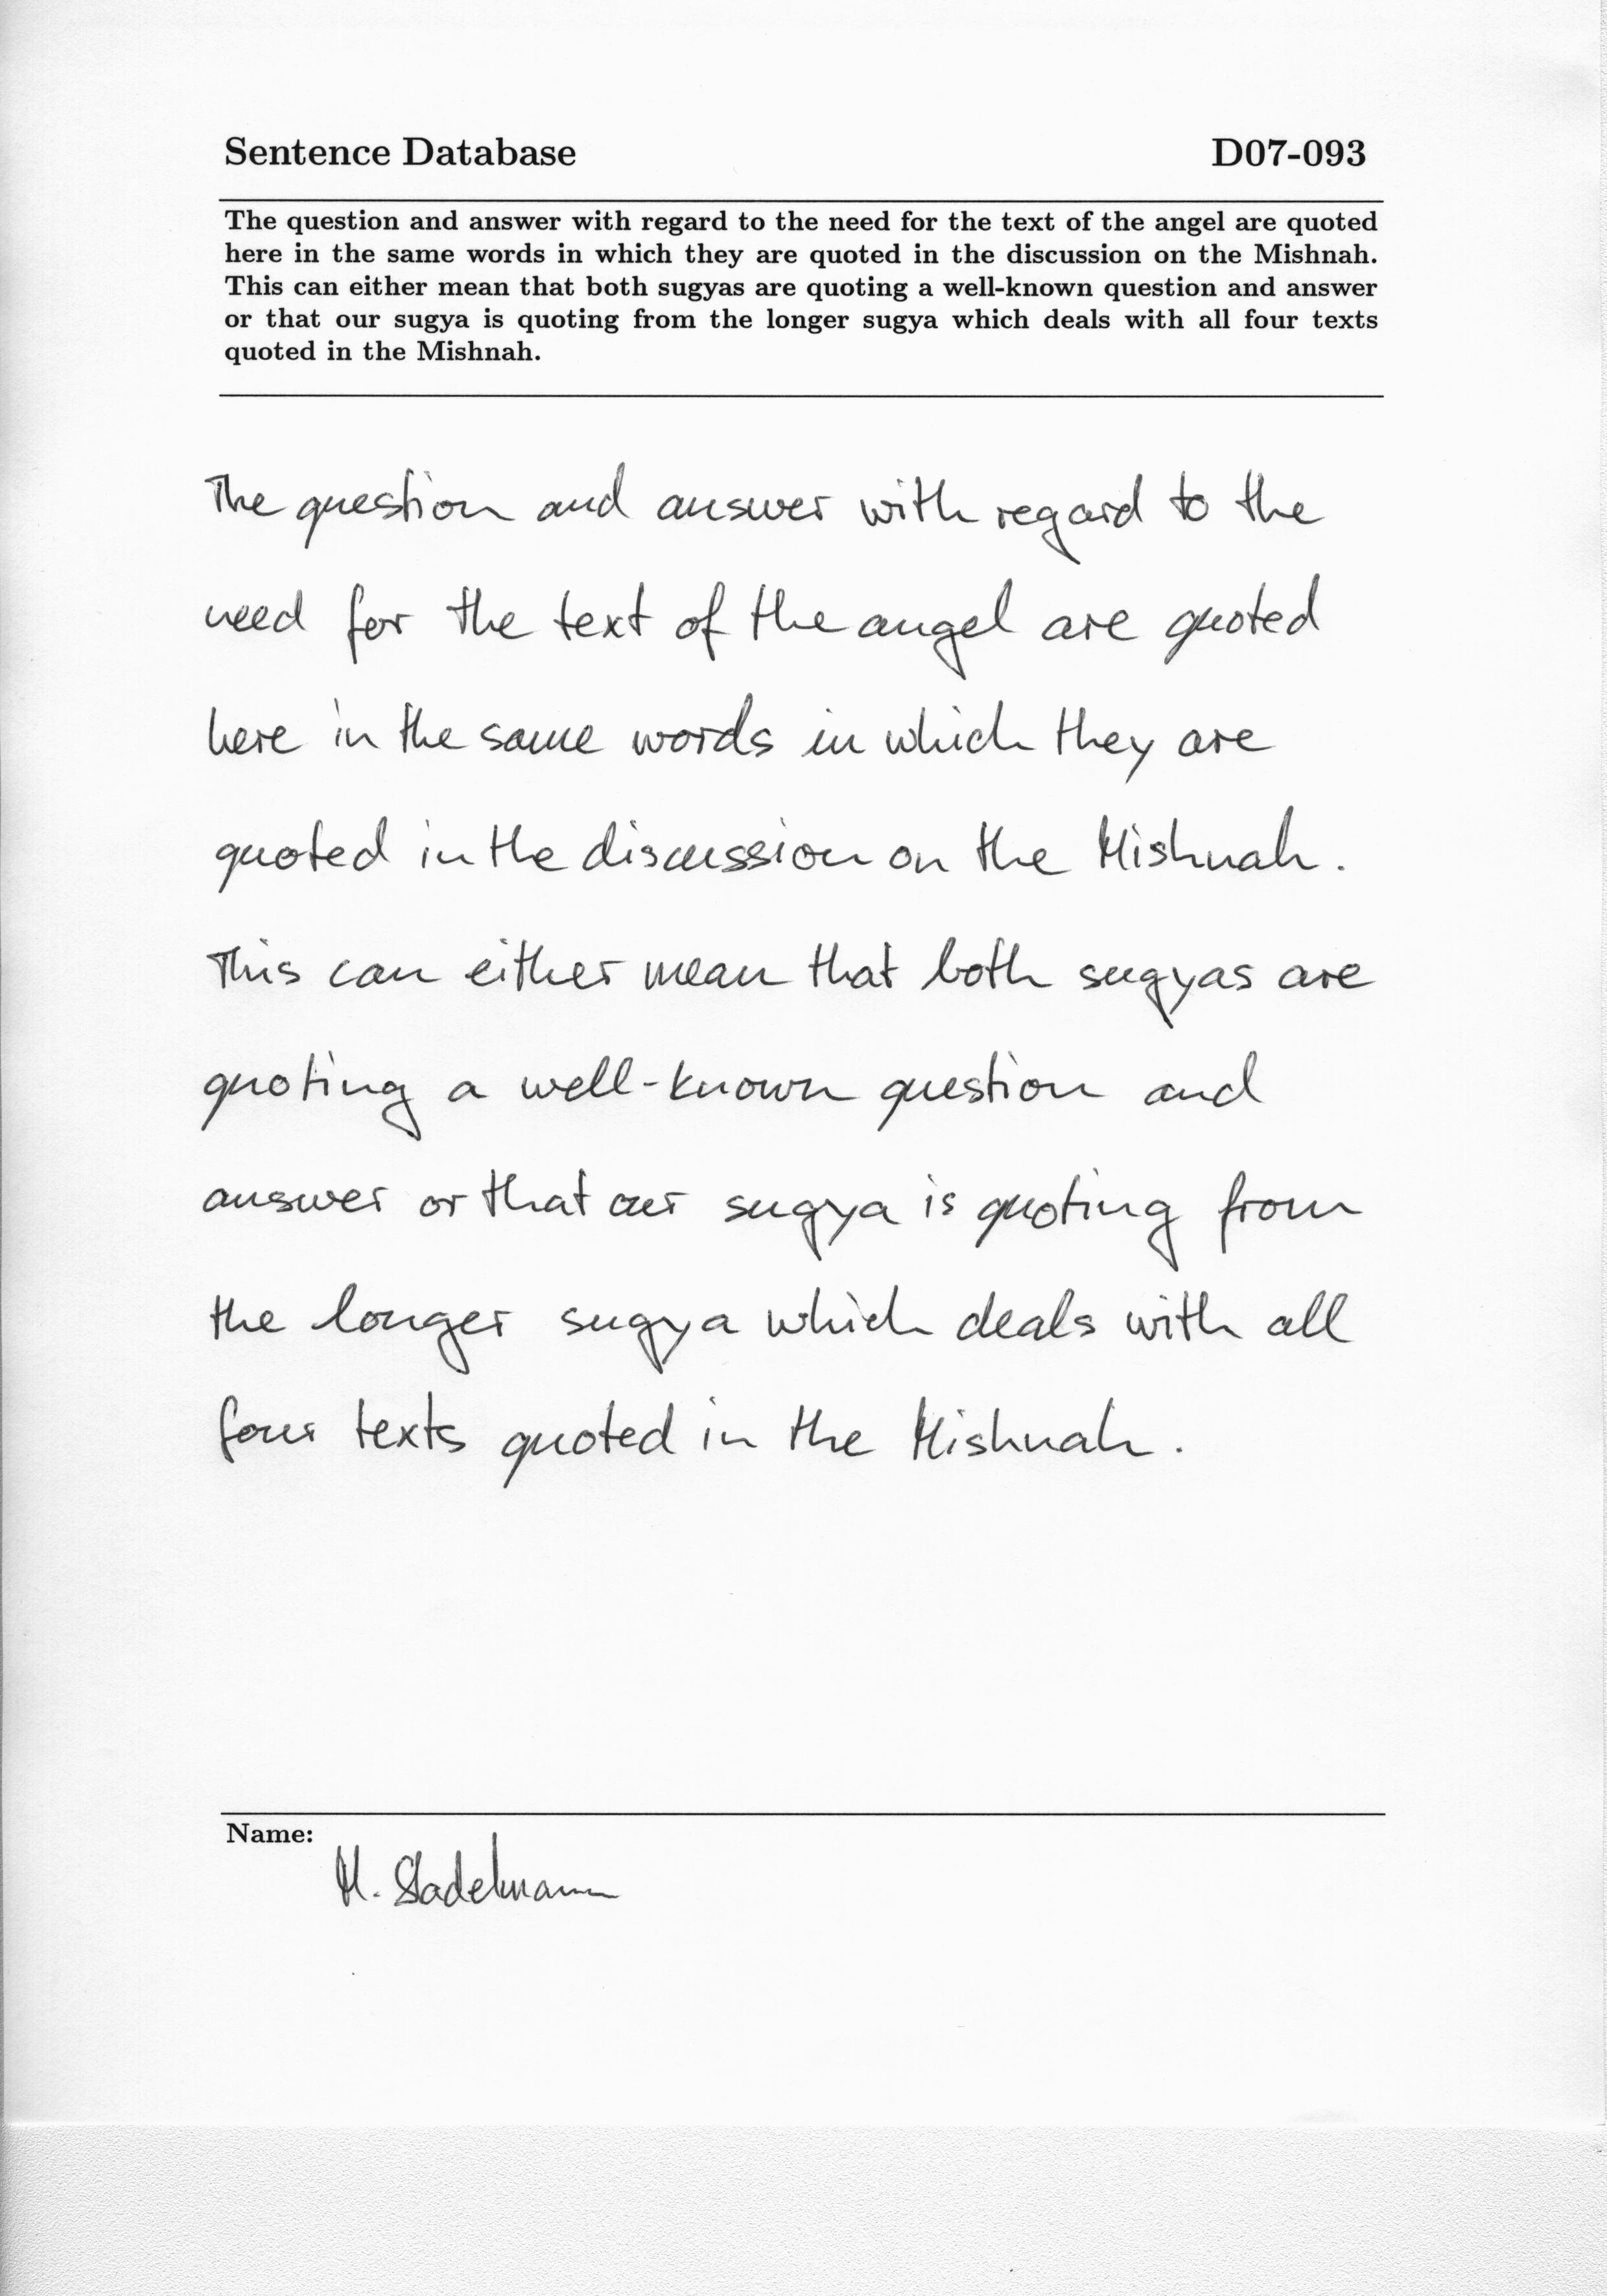 Sentence Database D07-093
The question and answer with regard to the need for the text of the angel are quoted
here in the same words in which they are quoted in the discussion on the Mishnah.
This can either mean that both sugyas are quoting a well-known question and answer
or that our sugya is quoting from the longer sugya which deals with all four texts
quoted in the Mishnah.
The question and answer with regard to the
need for the text of the angel are quoted
here in the same words in which they are
quoted in the discussion on the Mishnah.
This can either mean that both sugyas are
quoting a well-known question and
answer or that our sugya is quoting from
the longer sugya which deals with all
four texts quoted in the Mishnah.
Name:
M. Stadelmann